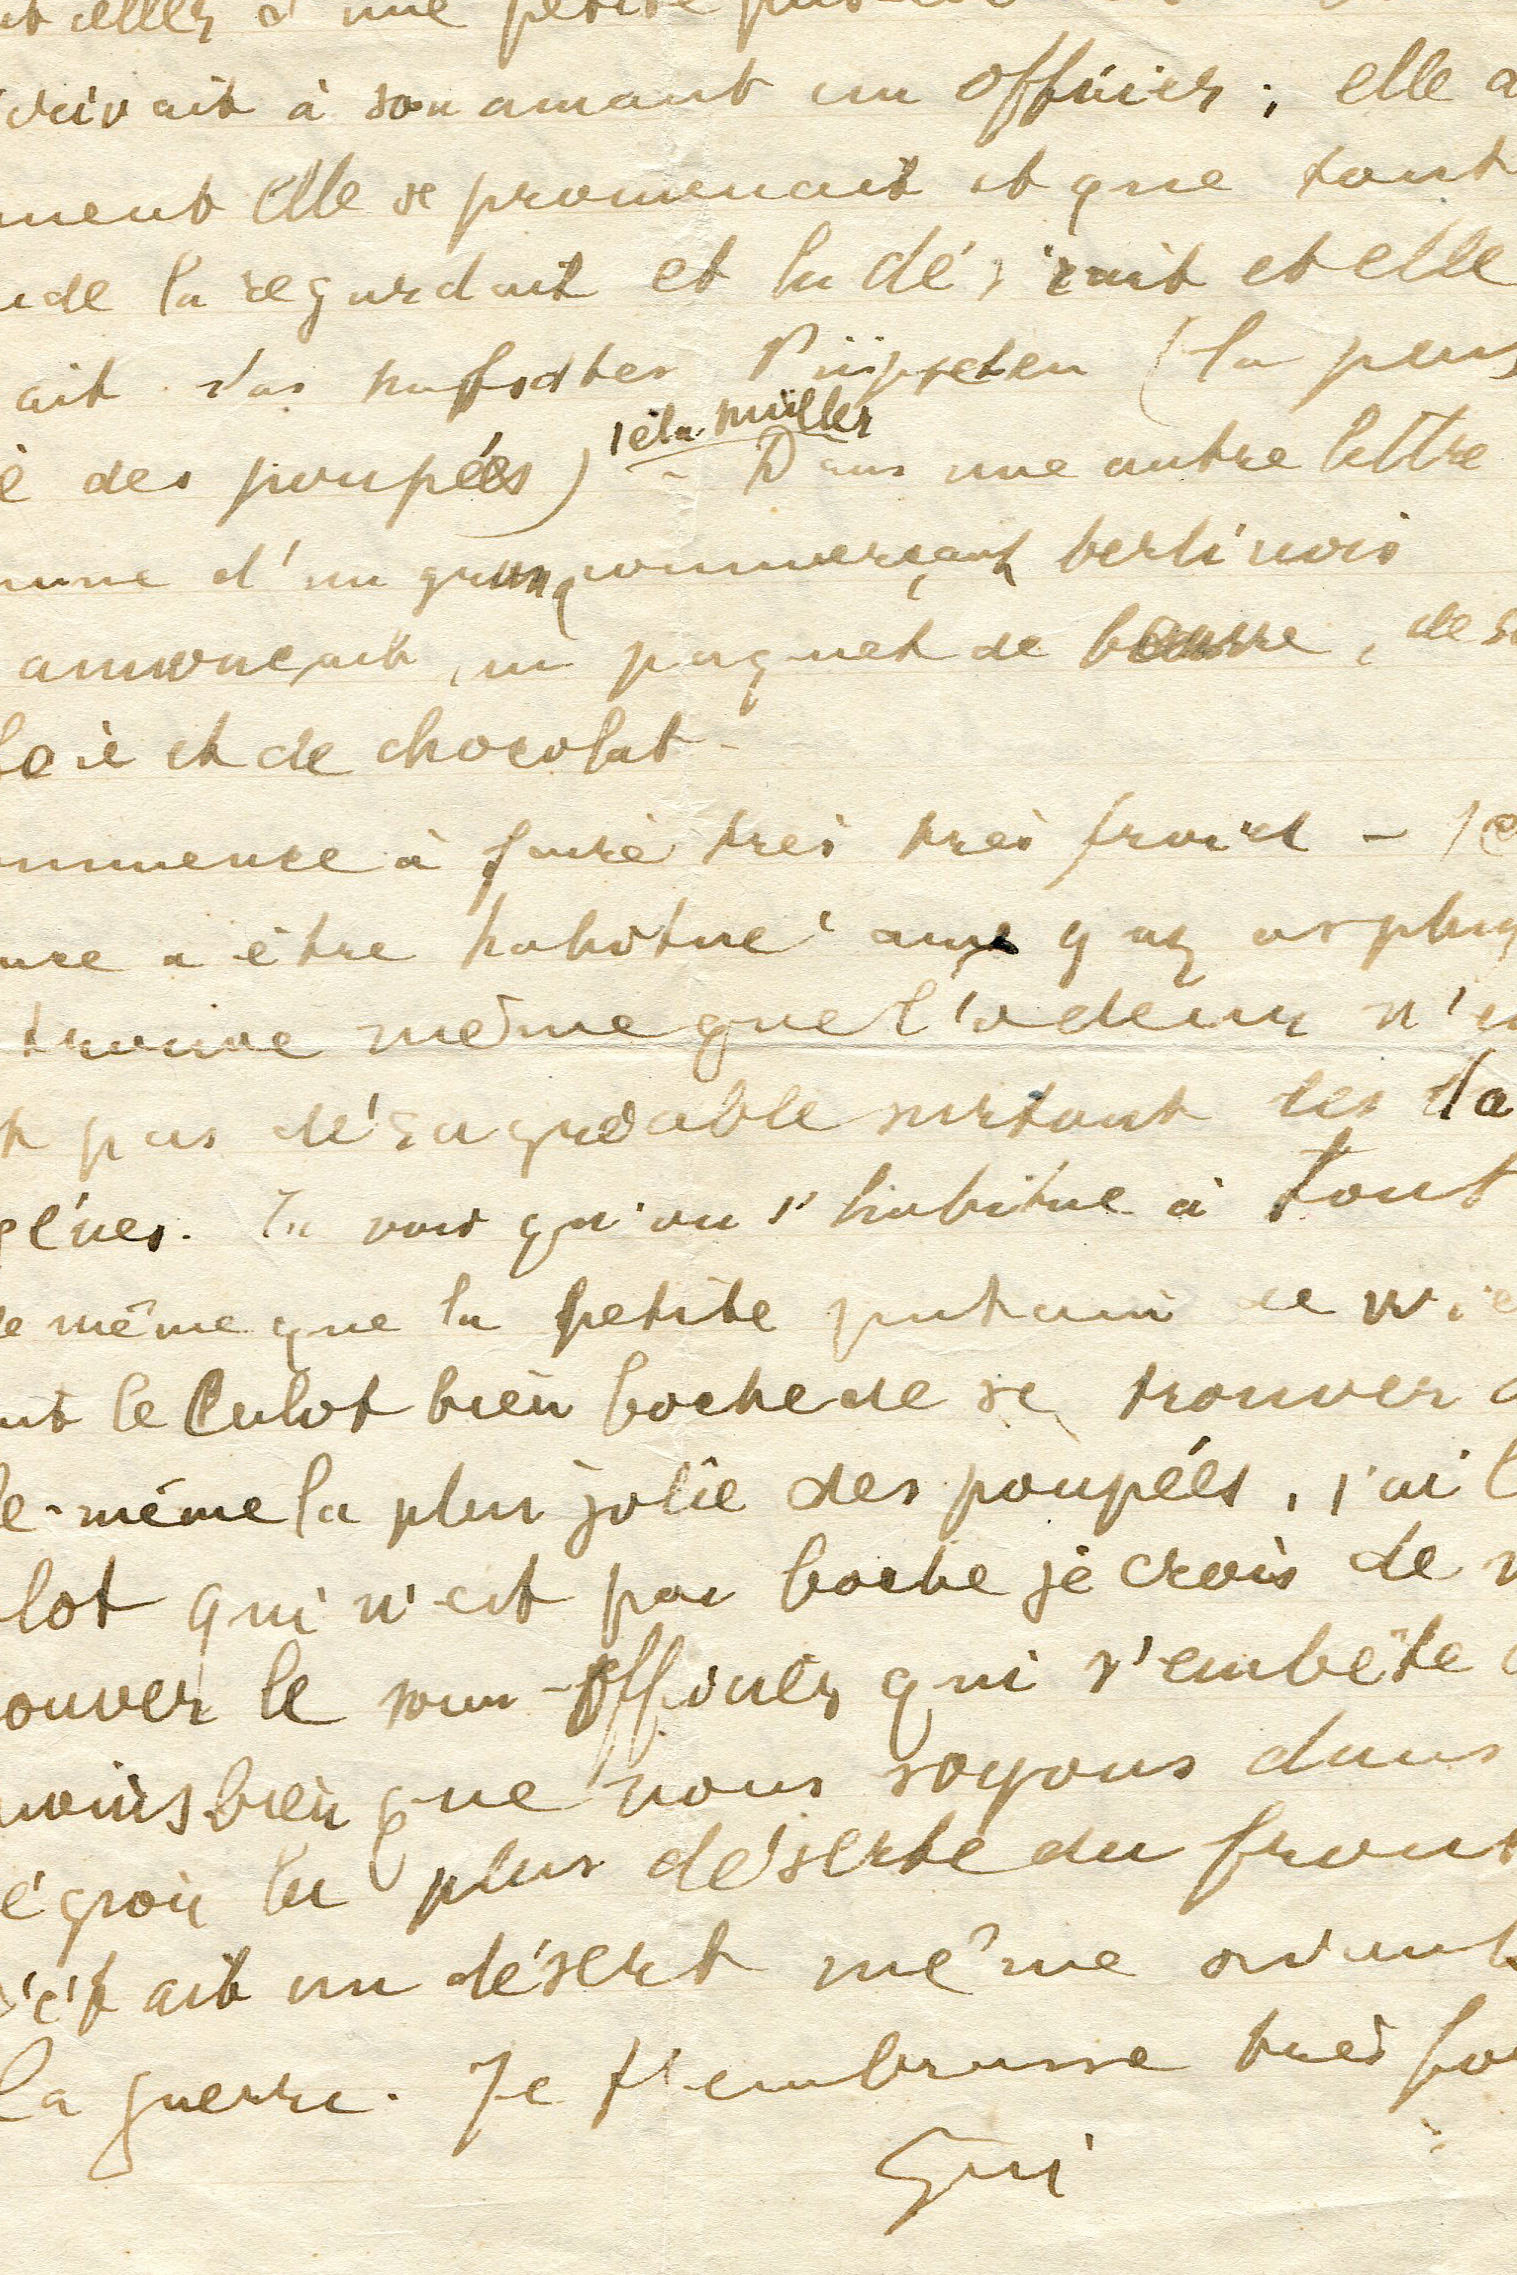 elles d'une petite
écrivait à son amant un officier ; elle a
ment elle se promenait et que tout
nde la regardait et la désirait et elle
ait das hübschter Püppchen (la plus
e des poupées) Iela. Müller - Dans une autre lettre
mme d'un grand commerçant berlinois
annonçait un paquet de beurre, de s
loie et de chocolat -
ommence à faire très très froid - Je
ure a être habitué aux gaz asphy
trouve même que l'odeur n'e
t pas désagréable surtout les la
gènes. Tu vois qu'on s'habitue à tout
de même que la petite putain de Wie
ait le culot bien boche de se trouver
le-même la plus jolie des poupées, j'ai l
lot qui n'est pas boche je crois de
ouver le sous-officier qui s'embête
moins bien que nous soyons dans
égion la plus déserte du front
c'était un désert même avant
la guerre. Je t'embrasse très fo
Gui